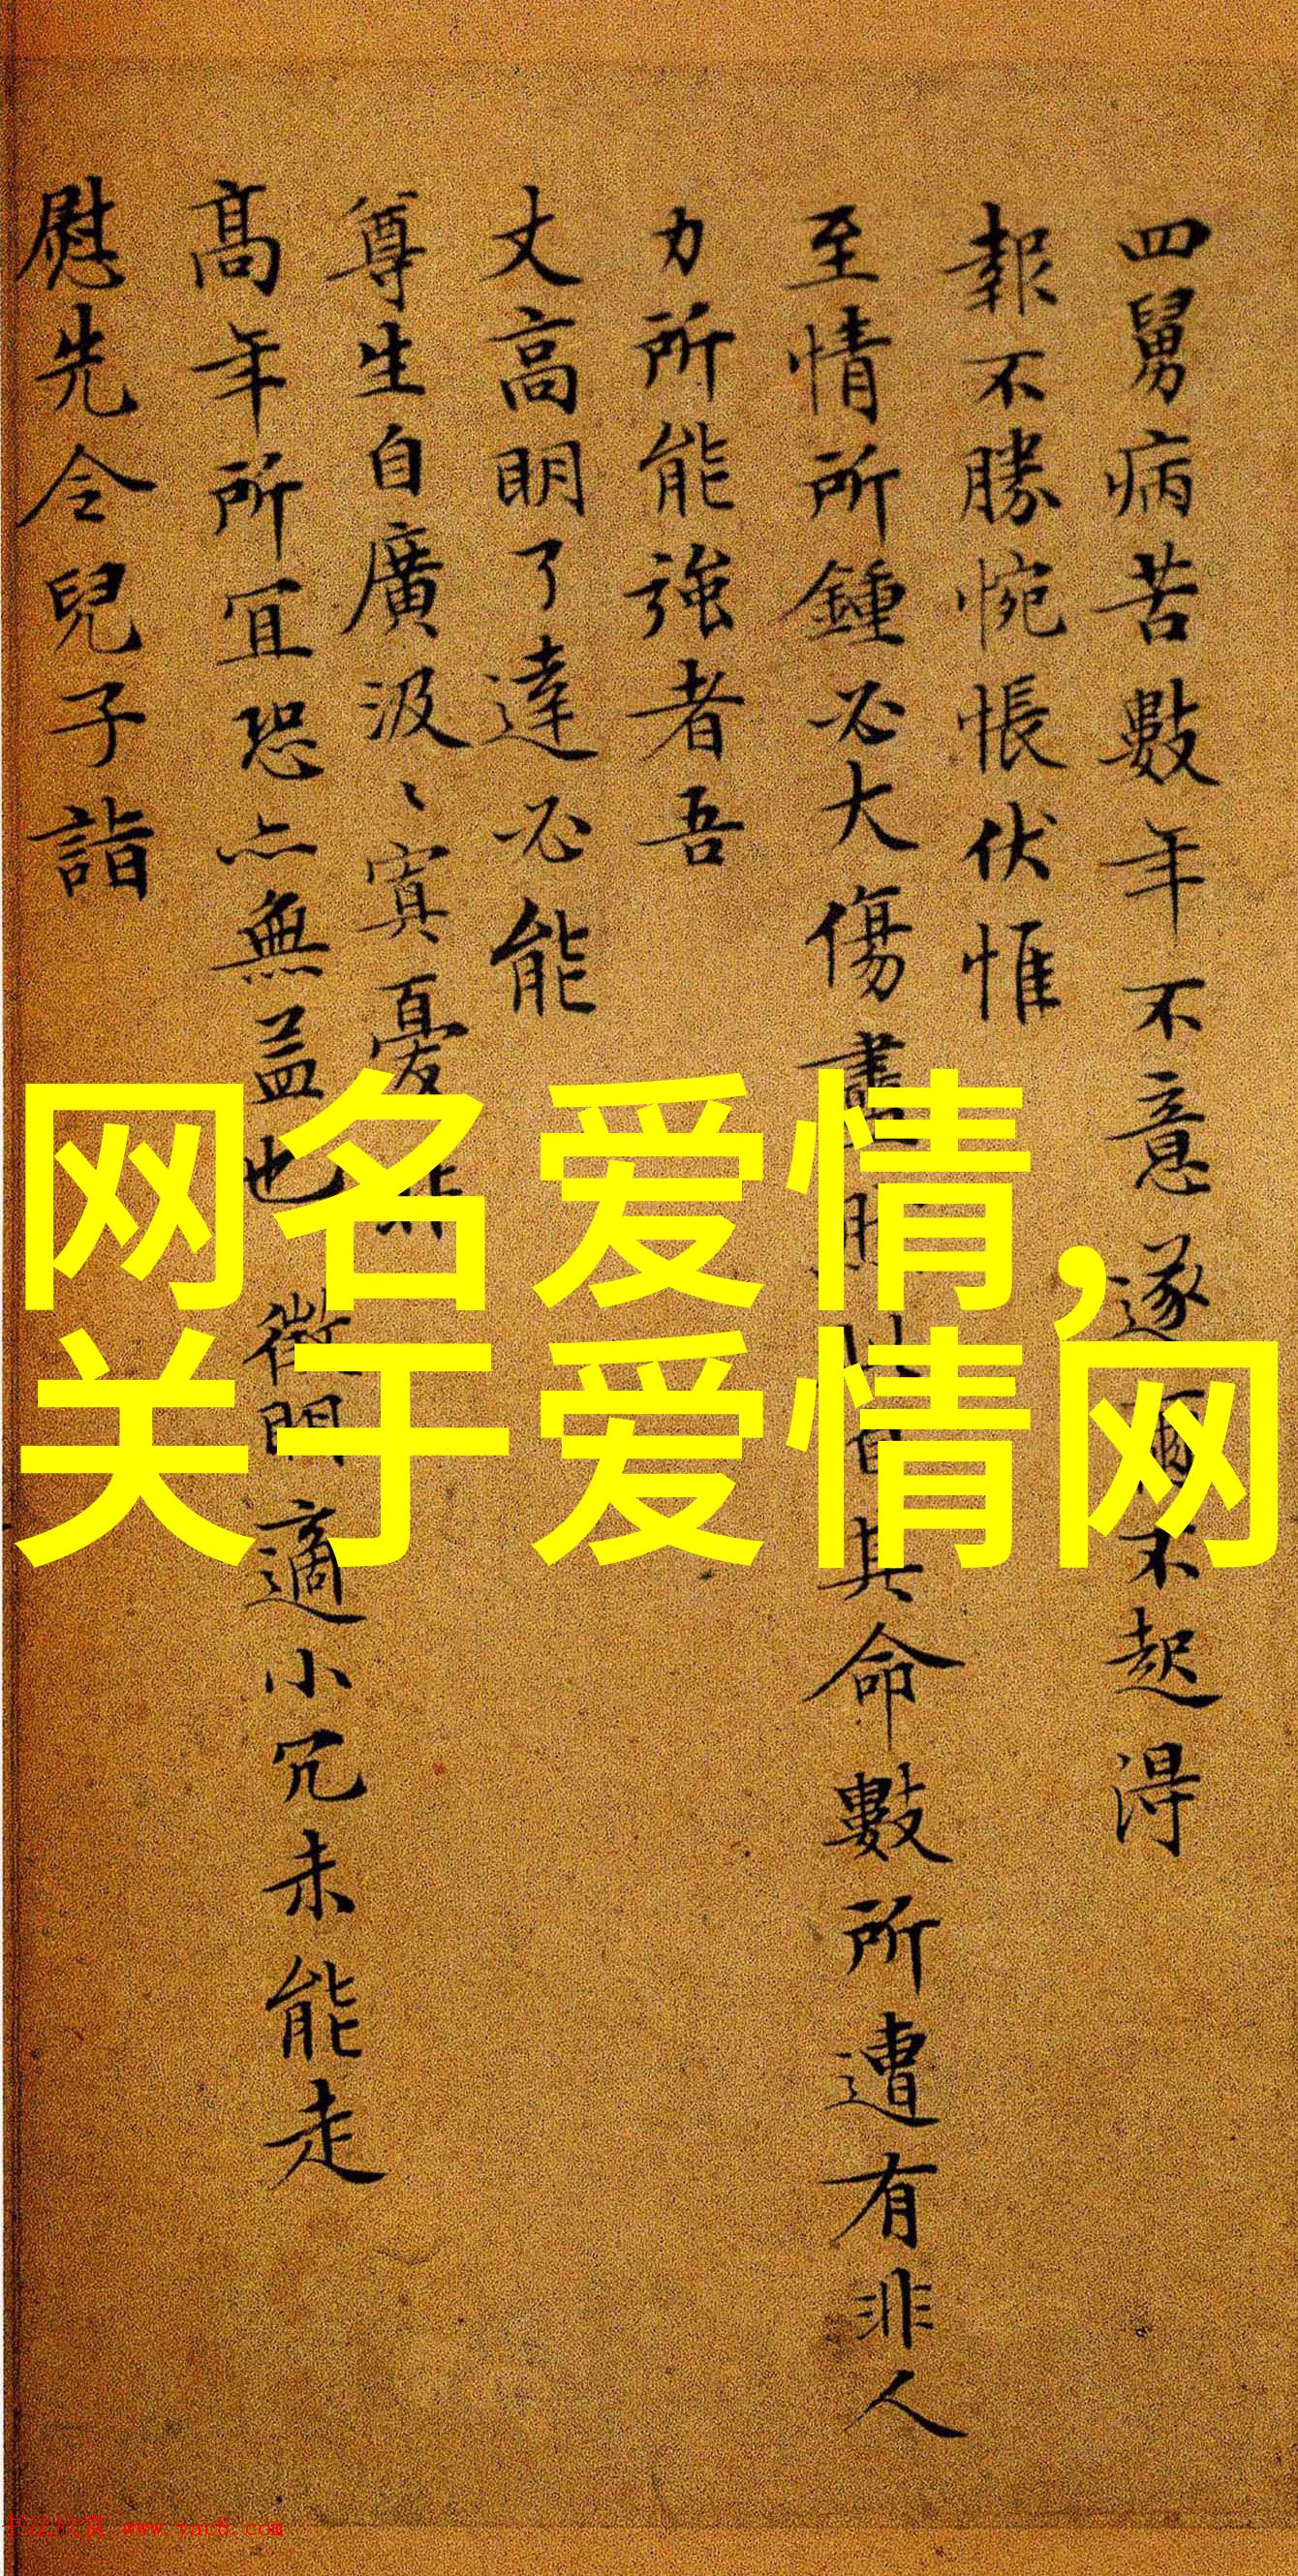 四舅病苦數年不意遂爾不起得
報不勝惋悵伏惟
至情所鍾必大傷盡其命數所遭有非人
力所能強者吾
丈高明了達必能
尊生自廣汲々寘憂非
高年所宜恐亦無益也 適小冗未能走
慰先令兒子詣
网名爱情,
关于爱情网
书法欣赏 www.yac8.com